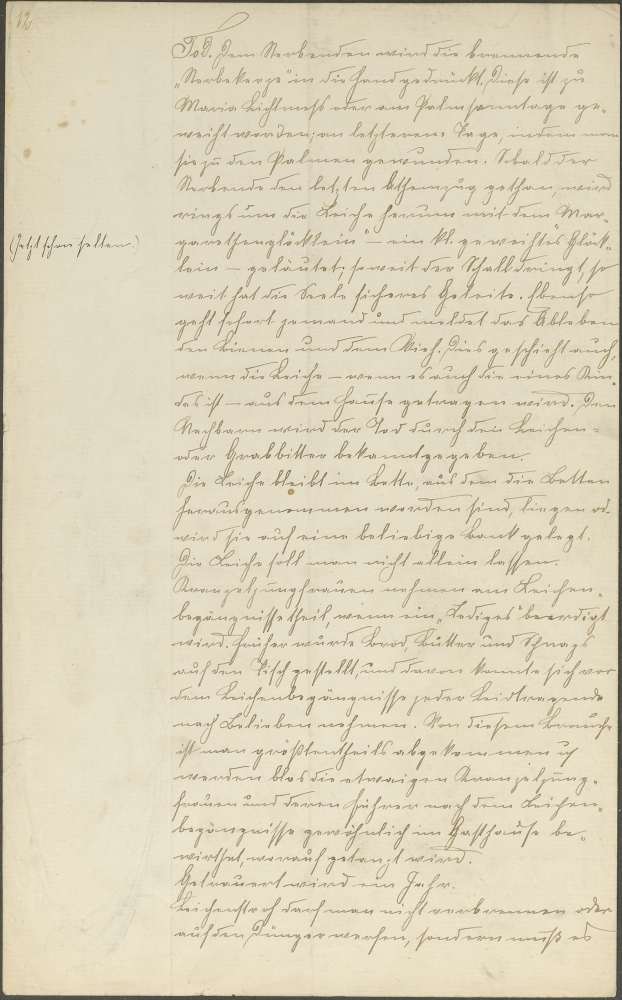 12
Tod. Dem Sterbenden wird die brennende
„Sterbekerze" in die Hand gedrückt. Diese ist zu
Maria Lichtmess oder am Palmsonntage ge-
weiht worden; an letzterem Tage, indem man
sie zu den Palmen gewunden. Sobald der
Sterbende den letzten Athemzug gethan, wird
rings um die Leiche herum mit dem „Mar-
garethenglöcklein" – ein kl. geweihtes Glöck-
(Jetzt schon selten.)
lein – geläutet; soweit der Schall dringt, so
weit hat die Seele sicheres Geleite. Ebenso
geht sofort jemand und meldet das Ableben
den Bienen und dem Vieh. Dies geschieht auch,
wenn die Leiche – wenn es auch die eines Kin-
des ist – aus dem Hause getragen wird. Den
Nachbarn wird der Tod durch den Leichen-
oder Grabbitter bekanntgegeben.
Die Leiche bleibt im Bette, aus dem die Betten
herausgenommen worden sind, liegen od.
wird sie auf eine beliebige Bank gelegt.
Die Leiche soll man nicht allein lassen.
Kranzeljungfrauen nehmen am Leichen-
begängnisse theil, wenn ein „Lediges" beerdigt
wird. Früher wurde Brod, Butter und Schnaps
auf den Tisch gestellt, und davon konnte sich vor
dem Leichenbegängnisse jeder Leidtragende
nach Belieben nehmen. Von diesem Brauche
ist man größtentheils abgekommen u
werden blos die etwaigen Kranzeljung-
frauen und deren Führer nach dem Leichen-
begängnisse gewöhnlich im Gasthause be-
wirthet, worauf getanzt wird.
Getrauert wird ein Jahr.
Leichenstroh darf man nicht verbrennen oder
auf den Dünger werfen, sondern muß es